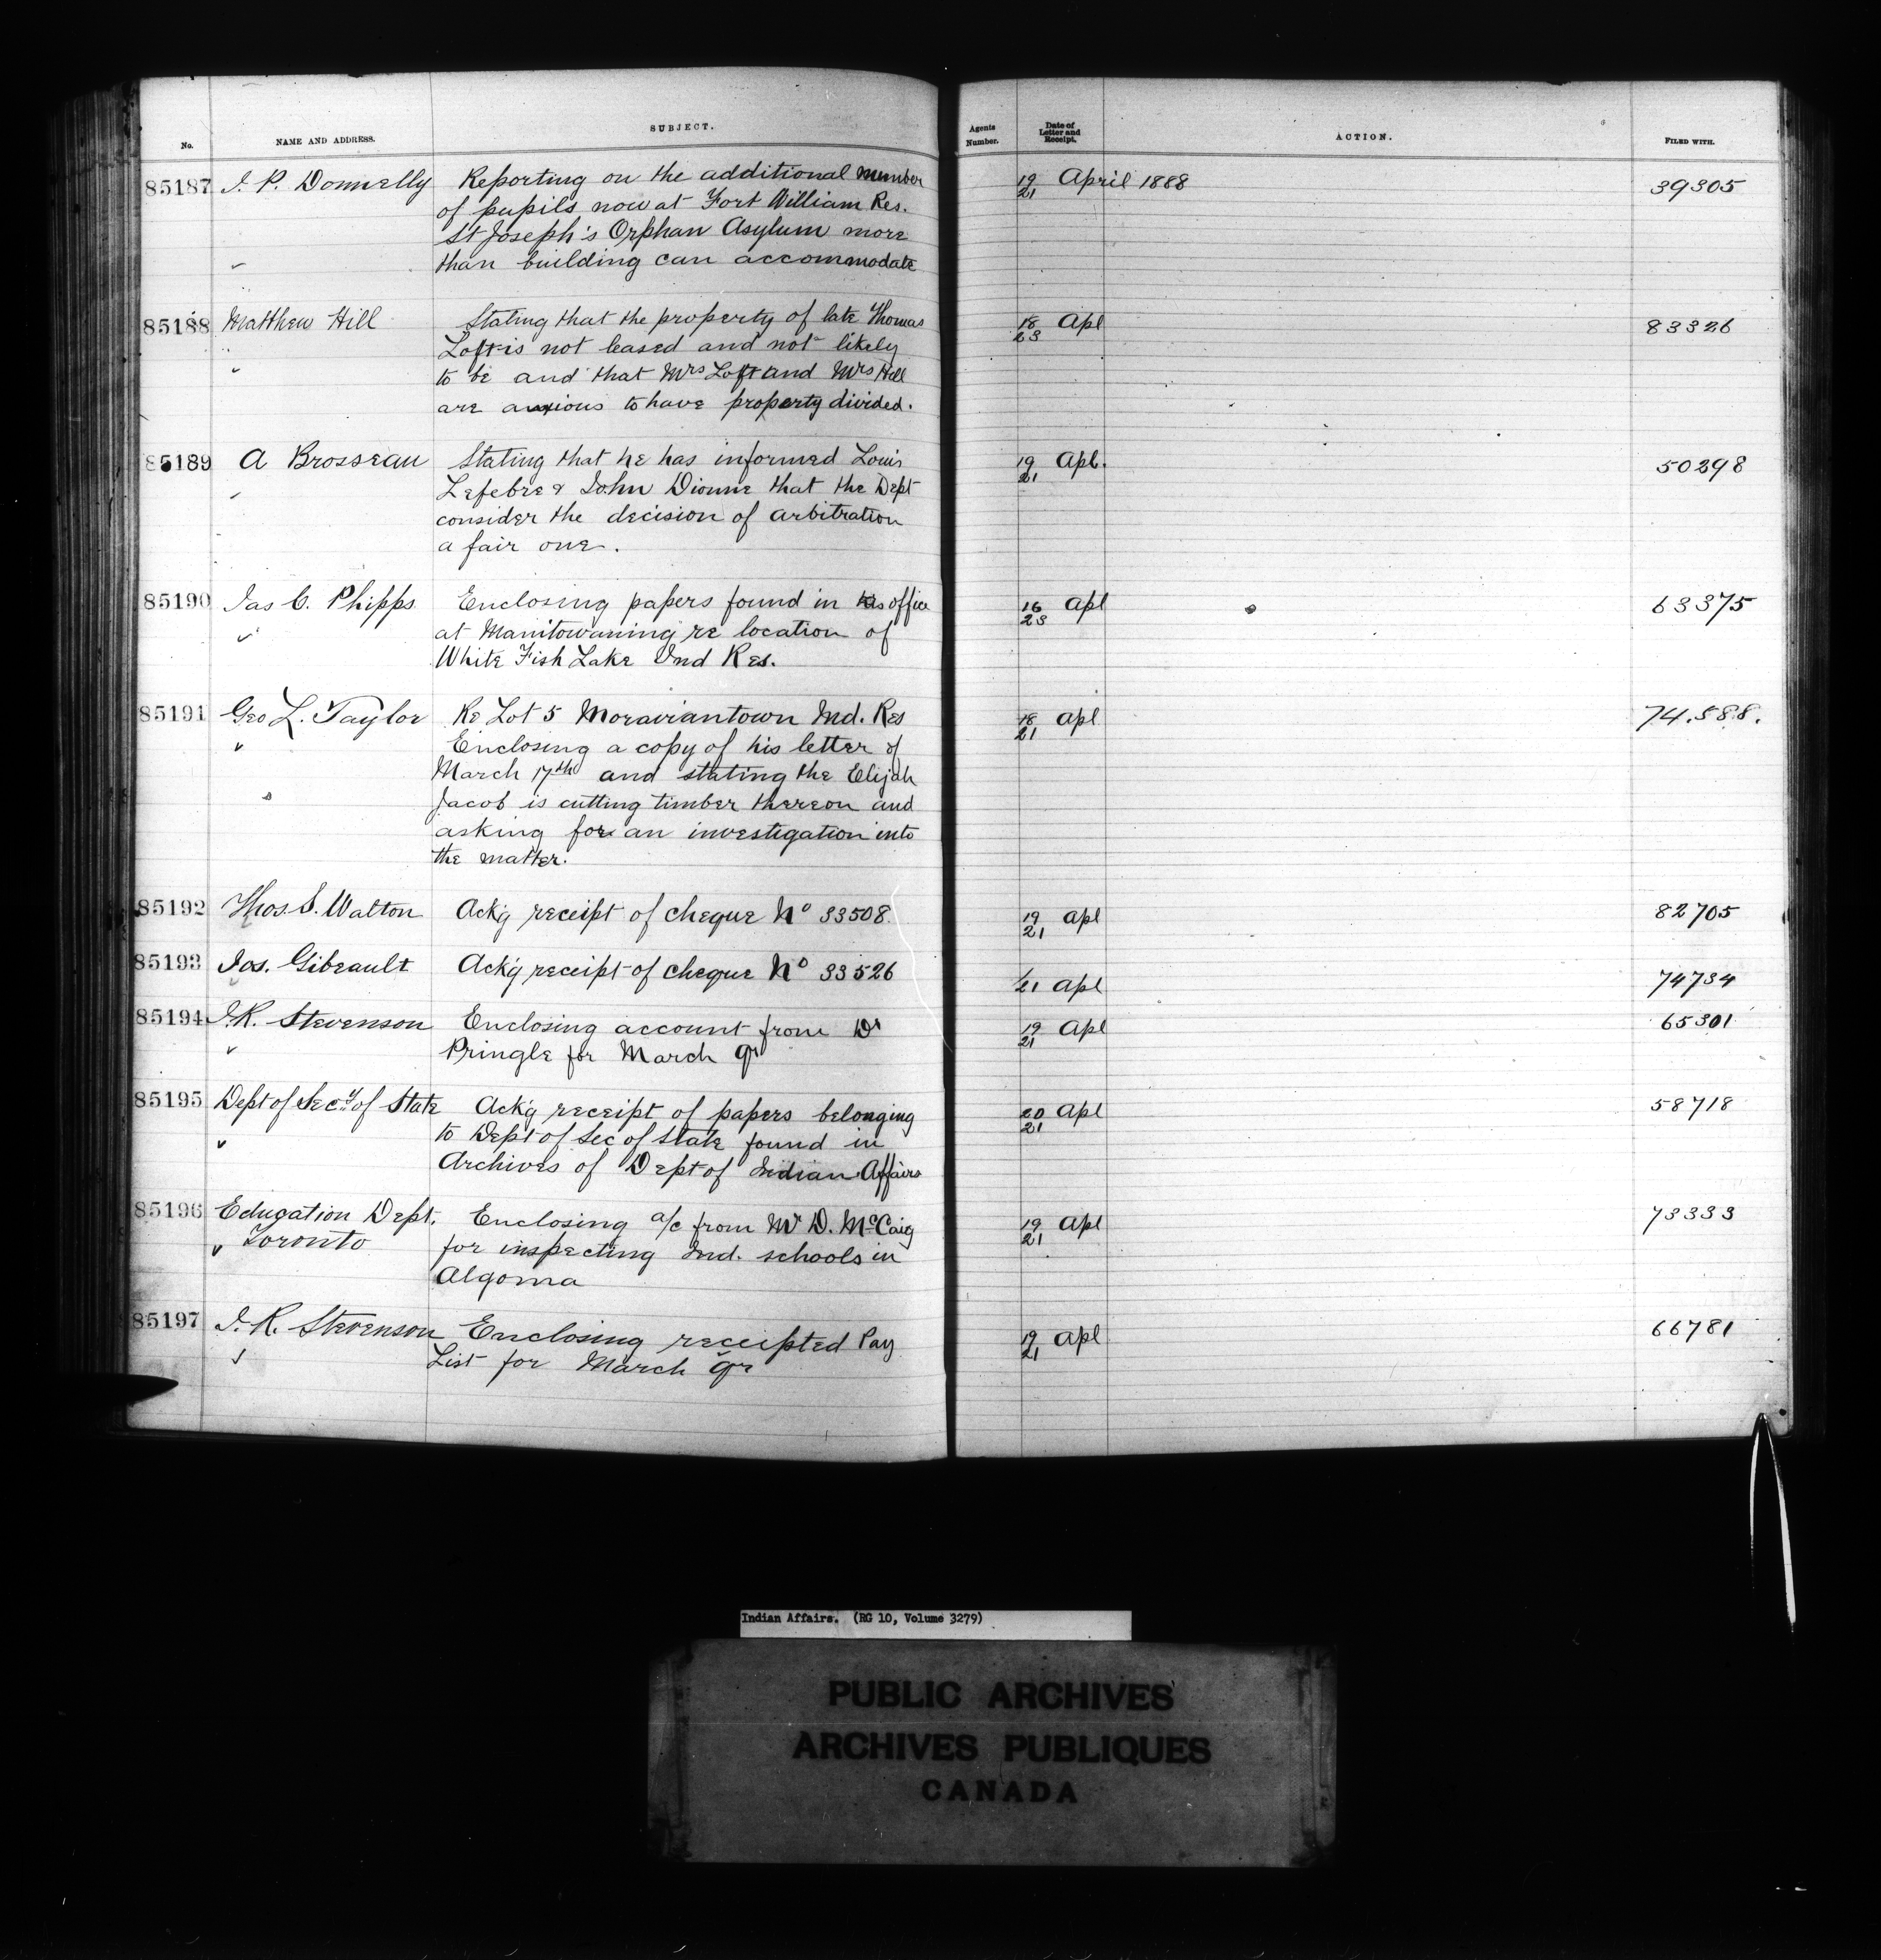 No. NAME AND ADDRESS. SUBJECT. Agents Number. Date of Letter and Receipt. ACTION. FILED WITH.
85187 J. P. Donnelly Reporting on the additional number 19/21 April 1888 39305
of pupils now at Fort William Res.
St Joseph's Orphan Asylum more
than building can accommodate
85188 Matthew Hill Stating that the property of late Thomas 18/23 Apl 83326
Loft is not leased and not likely
to be and that Mrs Loft and Mrs Hill
are anxious to have property divided.
85189 A Brosseau Stating that he has informed Louis 19/21 Apl. 50298
Lefebre & John Dionne that the Dept
consider the decision of arbitration
a fair one.
85190 Jas C. Phipps Enclosing papers found in his office 16/23 Apl 63375
at Manitowaning re location of
White Fish Lake Ind Res.
85191 Geo L. Taylor Re Lot 5 Moraviantown Ind. Res 18/21 Apl 74.588.
Enclosing a copy of his letter of
March 17th and stating the Elijah
Jacob is cutting timber thereon and
asking for an investigation into
the matter.
85192 Thos. S. Walton Ack'g receipt of cheque No 33508. 19/21 Apl 82705
85193 Jos. Gibeault Ack'g receipt of cheque No 33526 /21 Apl 74734
85194 J.R. Stevenson Enclosing account from Dr 19/21 Apl 65301
Pringle for March qr
85195 Dept of Secy of State Ack'g receipt of papers belonging 20/21 Apl 58718
to Dept of Sec of State found in
Archives of Dept of Indian Affairs
85196 Education Dept. Enclosing a/c from Mr D. McCaig 19/21 Apl 73333
Toronto for inspecting Ind. schools in
Algoma
85197 J. R. Stevenson Enclosing receipted Pay 19/21 Apl 66781
List for March qr
Indian Affairs. (RG 10, Volume 3279)
PUBLIC ARCHIVES
ARCHIVES PUBLIQUES
CANADA